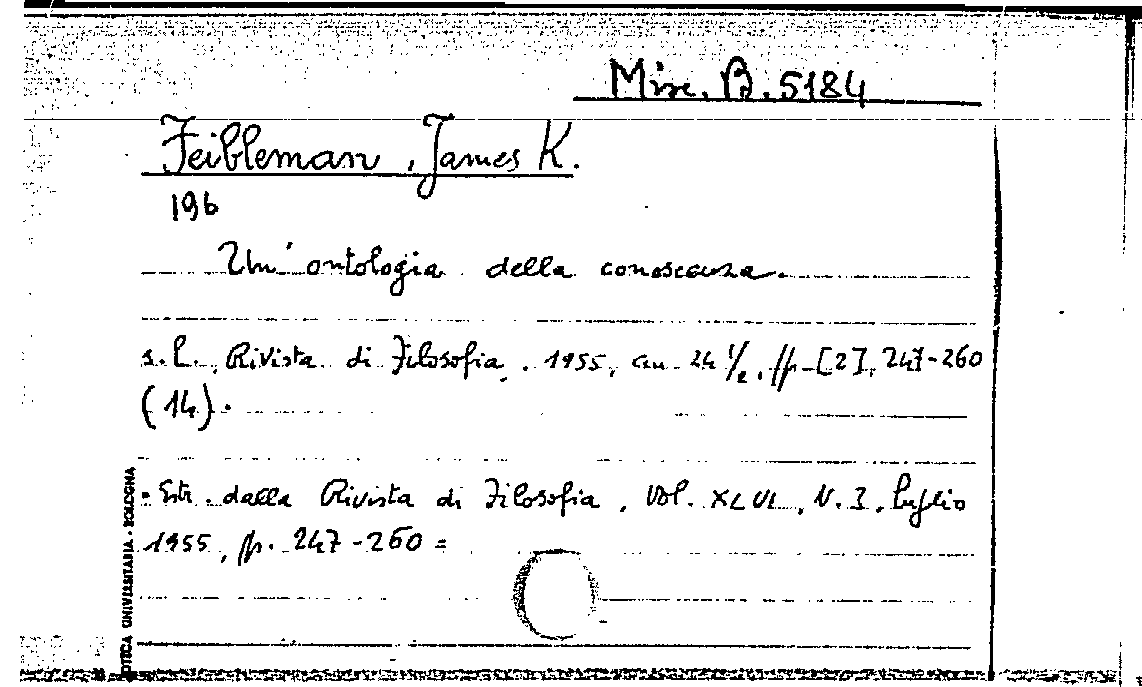 Misc. B. 5184
Feibleman, James K.
196
Un' ontologia della conoscenza.
s.l., Rivista di Filosofia, 1955, cm 24 1/2, pp. [2], 247-260
(14).
= Estr. dalla Rivista di Filosofia, Vol. XLVI, N. 3, luglio
1955, p. 247-260 =
OTECA UNIVERSITARIA - BOLOGNA